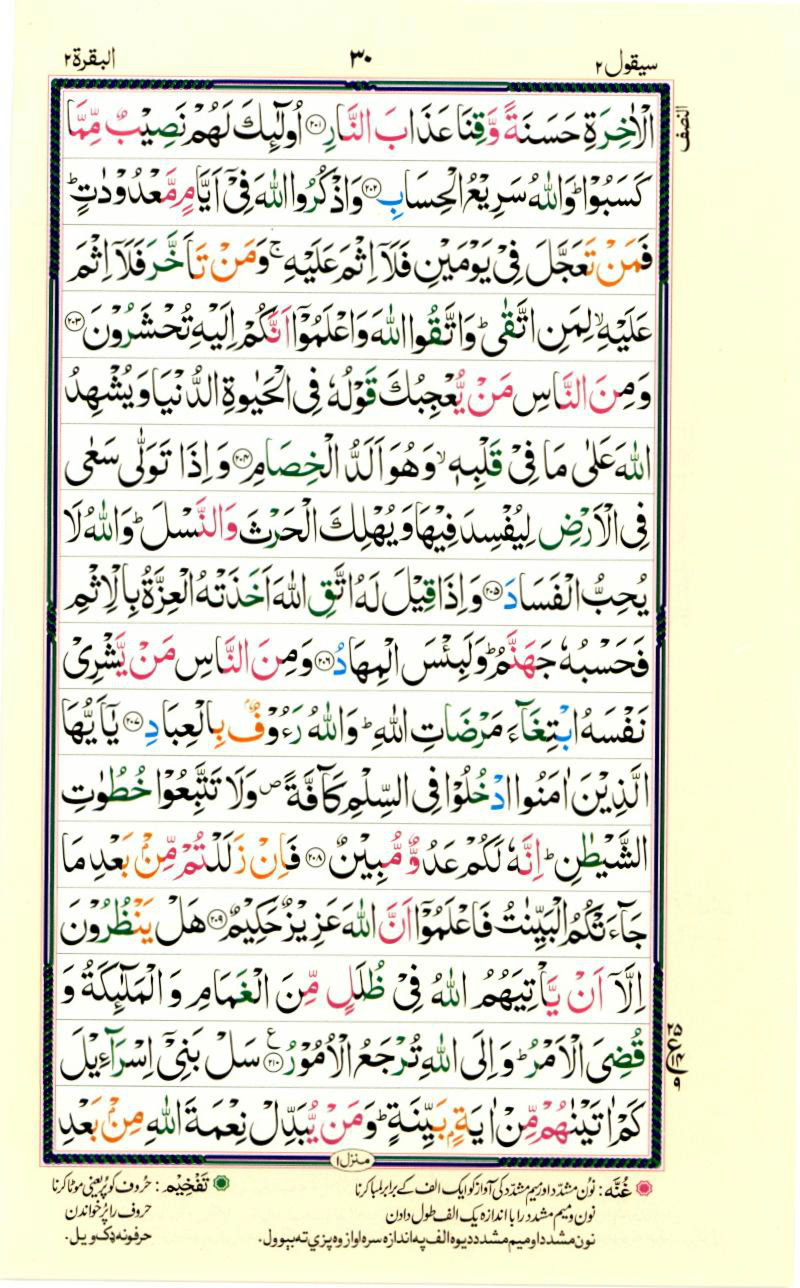 سیقول ۲
۳۰
البقرة ۲
النصف
الْاٰخِرَةِ حَسَنَةً وَّقِنَا عَذَابَ النَّارِ ۲۰۱ اُولٰٓئِكَ لَهُمْ نَصِیْبٌ مِّمَّا
كَسَبُوْا ؕ وَاللّٰهُ سَرِیْعُ الْحِسَابِ ۲۰۲ وَاذْكُرُوا اللّٰهَ فِیْۤ اَیَّامٍ مَّعْدُوْدٰتٍ ؕ
فَمَنْ تَعَجَّلَ فِیْ یَوْمَیْنِ فَلَاۤ اِثْمَ عَلَیْهِ ۚ وَمَنْ تَاَخَّرَ فَلَاۤ اِثْمَ
عَلَیْهِ ۙ لِمَنِ اتَّقٰی ؕ وَاتَّقُوا اللّٰهَ وَاعْلَمُوْۤا اَنَّكُمْ اِلَیْهِ تُحْشَرُوْنَ ۲۰۳
وَمِنَ النَّاسِ مَنْ یُّعْجِبُكَ قَوْلُهٗ فِی الْحَیٰوةِ الدُّنْیَا وَیُشْهِدُ
اللّٰهَ عَلٰی مَا فِیْ قَلْبِهٖ ۙ وَهُوَ اَلَدُّ الْخِصَامِ ۲۰۴ وَاِذَا تَوَلّٰی سَعٰی
فِی الْاَرْضِ لِیُفْسِدَ فِیْهَا وَیُهْلِكَ الْحَرْثَ وَالنَّسْلَ ؕ وَاللّٰهُ لَا
یُحِبُّ الْفَسَادَ ۲۰۵ وَاِذَا قِیْلَ لَهُ اتَّقِ اللّٰهَ اَخَذَتْهُ الْعِزَّةُ بِالْاِثْمِ
فَحَسْبُهٗ جَهَنَّمُ ؕ وَلَبِئْسَ الْمِهَادُ ۲۰۶ وَمِنَ النَّاسِ مَنْ یَّشْرِیْ
نَفْسَهُ ابْتِغَآءَ مَرْضَاتِ اللّٰهِ ؕ وَاللّٰهُ رَءُوْفٌۢ بِالْعِبَادِ ۲۰۷ یٰۤاَیُّهَا
الَّذِیْنَ اٰمَنُوا ادْخُلُوْا فِی السِّلْمِ كَآفَّةً ۪ وَلَا تَتَّبِعُوْا خُطُوٰتِ
الشَّیْطٰنِ ؕ اِنَّهٗ لَكُمْ عَدُوٌّ مُّبِیْنٌ ۲۰۸ فَاِنْ زَلَلْتُمْ مِّنْۢ بَعْدِ مَا
جَآءَتْكُمُ الْبَیِّنٰتُ فَاعْلَمُوْۤا اَنَّ اللّٰهَ عَزِیْزٌ حَكِیْمٌ ۲۰۹ هَلْ یَنْظُرُوْنَ
اِلَّاۤ اَنْ یَّاْتِیَهُمُ اللّٰهُ فِیْ ظُلَلٍ مِّنَ الْغَمَامِ وَالْمَلٰٓئِكَةُ وَ
قُضِیَ الْاَمْرُ ؕ وَاِلَی اللّٰهِ تُرْجَعُ الْاُمُوْرُ ۲۱۰ ع سَلْ بَنِیْۤ اِسْرَآءِیْلَ
كَمْ اٰتَیْنٰهُمْ مِّنْ اٰیَةٍۭ بَیِّنَةٍ ؕ وَمَنْ یُّبَدِّلْ نِعْمَةَ اللّٰهِ مِنْۢ بَعْدِ
منزل ۱
غُنَّه: نون مشدّد اور میم مشدّد کی آواز کو ایک الف کے برابر لمبا کرنا
نون و میم مشدد را با اندازہ یک الف طول دادن
نون مشدد او میم مشدد دیوه الف په اندازه سره اواز وه پزې ته بېوول.
تَفْخِیْم: حُروف کو پُر یعنی موٹا کرنا
حروف را پُر خواندن
حرفونه ډک ویل.